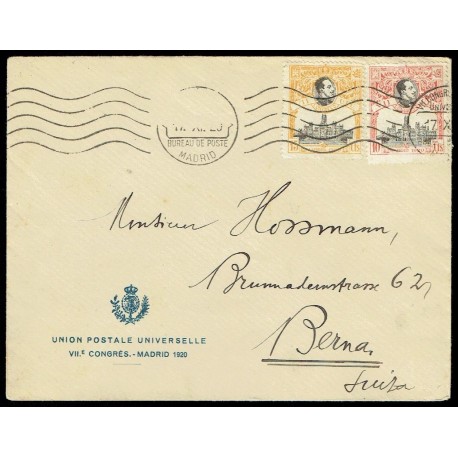 17. XI. 20
BUREAU DE POSTE
MADRID
Monsieur Hossmann,
Brunnadeinstrasse 62,
Berna,
Suiza
UNION POSTALE UNIVERSELLE
VII.E CONGRÈS.-MADRID 1920